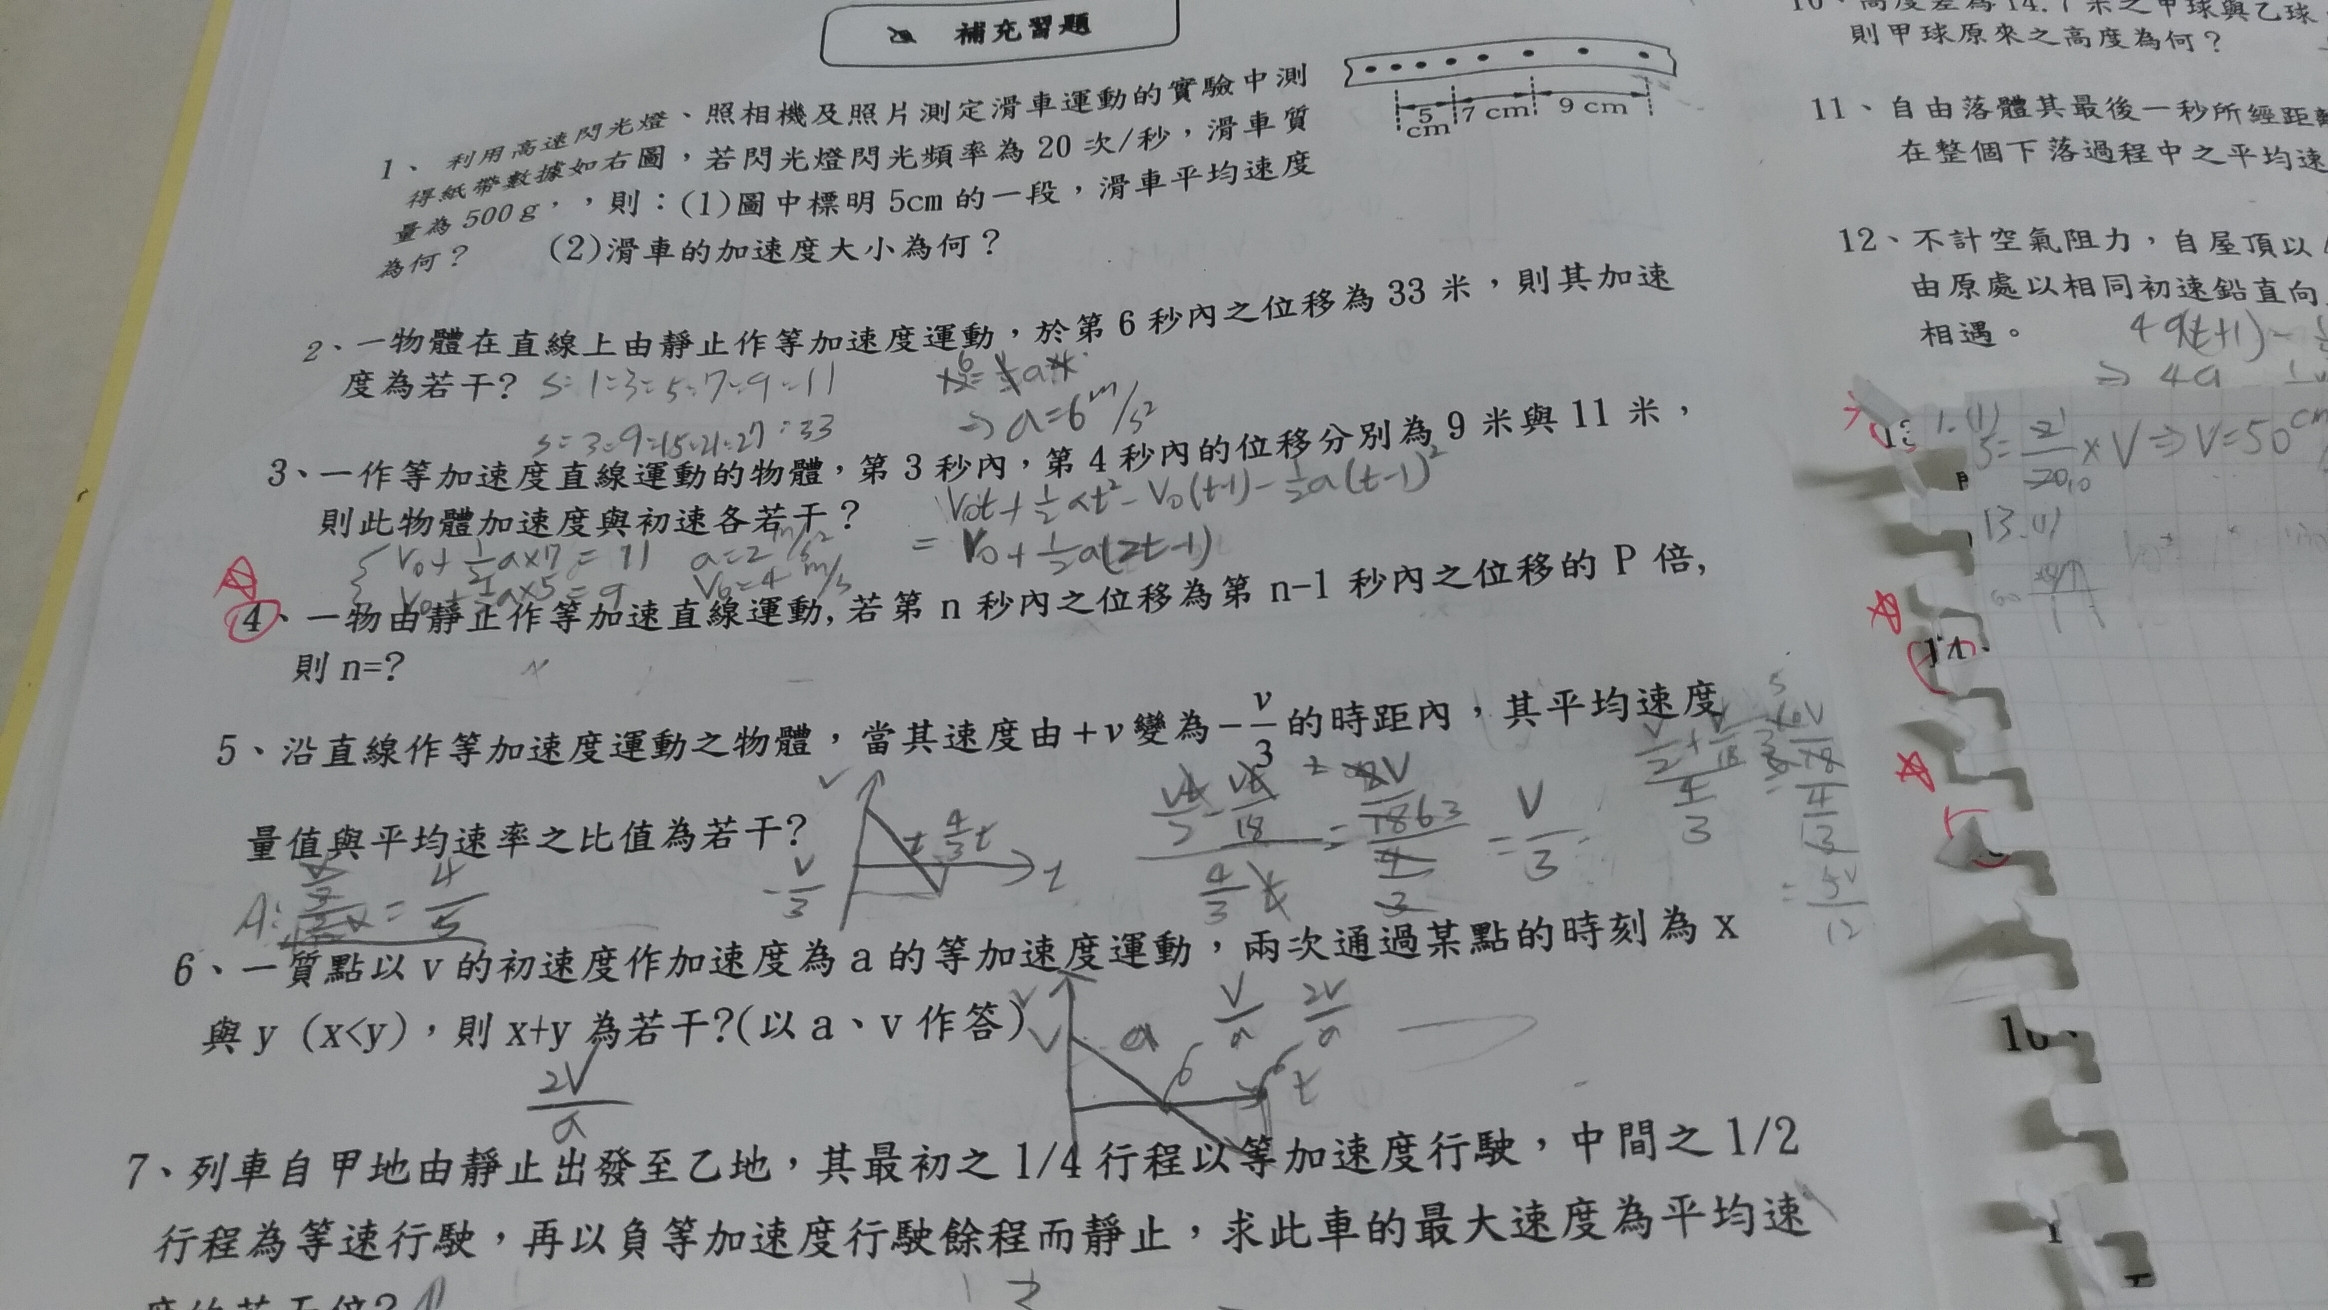 補充習題
1、利用高速閃光燈、照相機及照片測定滑車運動的實驗中測
得紙帶數據如右圖，若閃光燈閃光頻率為20次/秒，滑車質
量為500g，，則：(1)圖中標明5cm的一段，滑車平均速度
為何？ (2)滑車的加速度大小為何？
5 cm 7 cm 9 cm
2、一物體在直線上由靜止作等加速度運動，於第6秒內之位移為33米，則其加速
度為若干? S=1:3:5:7:9:11
S=3:9:15:21:27:33
⇒ a=6 m/s²
3、一作等加速度直線運動的物體，第3秒內，第4秒內的位移分別為9米與11米，
則此物體加速度與初速各若干？ V₀t+½at²-V₀(t-1)-½a(t-1)²
= V₀+½a(2t-1)
V₀+½a×7=11 a=2 m/s²
V₀+½a×5=9 V₀=4 m/s
4、一物由靜止作等加速直線運動,若第n秒內之位移為第n-1秒內之位移的P倍,
則n=?
5、沿直線作等加速度運動之物體，當其速度由+v變為-v/3的時距內，其平均速度
量值與平均速率之比值為若干?
V t 4/3 t t -V/3
= V/3
= 5V/12
= 4/5
6、一質點以v的初速度作加速度為a的等加速度運動，兩次通過某點的時刻為x
與y (x<y)，則x+y為若干?(以a、v作答)
2V/a
V a V/a 2V/a t
7、列車自甲地由靜止出發至乙地，其最初之1/4行程以等加速度行駛，中間之1/2
行程為等速行駛，再以負等加速度行駛餘程而靜止，求此車的最大速度為平均速
度的若干倍?
則甲球原來之高度為何？
11、自由落體其最後一秒所經距
在整個下落過程中之平均速
12、不計空氣阻力，自屋頂以
由原處以相同初速鉛直向
相遇。
49(t+1)-
1.(1)
×V⇒V=50 cm
13.(1)
14.